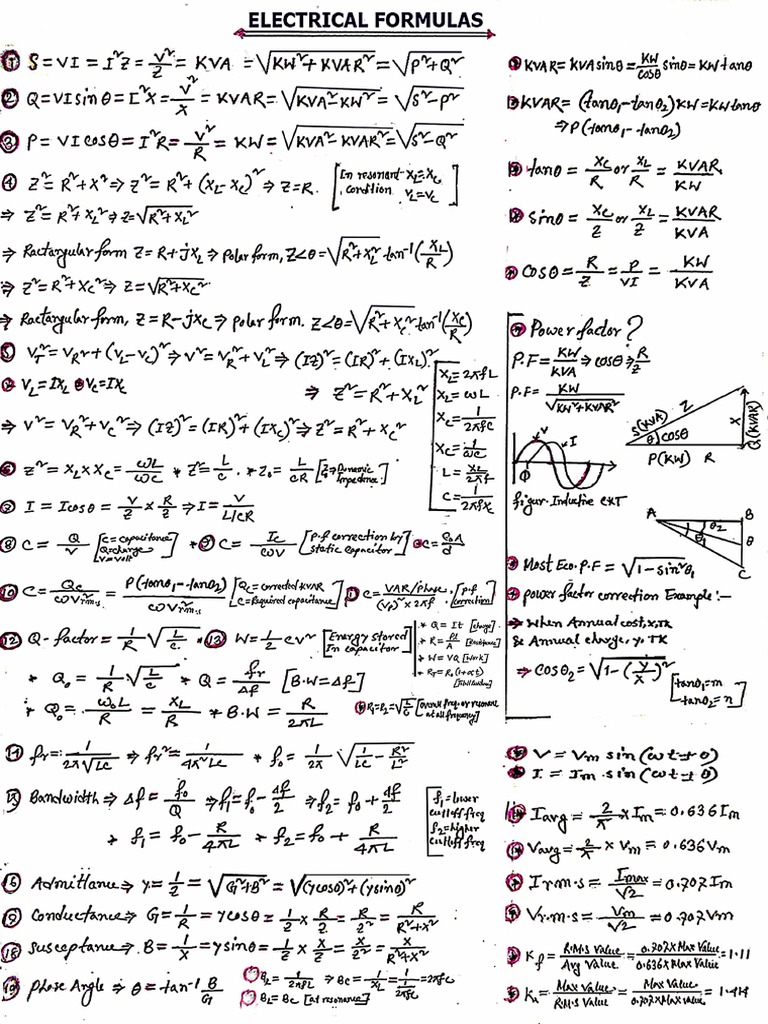 ELECTRICAL FORMULAS
① S = VI = I²Z = V²/Z = KVA = √(KW² + KVAR²) = √(P² + Q²)
② Q = VI sinθ = I²X = V²/X = KVAR = √(KVA² - KW²) = √(S² - P²)
③ P = VI cosθ = I²R = V²/R = KW = √(KVA² - KVAR²) = √(S² - Q²)
④ Z² = R² + X² ⇒ Z² = R² + (XL - XC)² ⇒ Z = R. [In resonant condition XL = XC, VL = VC]
⇒ Z² = R² + XL² ⇒ Z = √(R² + XL²)
⇒ Ractangular form Z = R + jXL ⇒ polar form, Z<θ = √(R² + XL²) tan⁻¹(XL/R)
⇒ Z² = R² + XC² ⇒ Z = √(R² + XC²)
⇒ Ractangular form, Z = R - jXC ⇒ polar form. Z<θ = √(R² + XC²) tan⁻¹(XC/R)
⑤ VT² = VR² + (VL - VC)² ⇒ V² = VR² + VL² ⇒ (IZ)² = (IR)² + (IXL)²
* VL = IXL * VC = IXC ⇒ Z² = R² + XL²
⇒ V² = VR² + VC² ⇒ (IZ)² = (IR)² + (IXC)² ⇒ Z² = R² + XC²
XL = 2πfL
XL = ωL
XC = 1/2πfC
XC = 1/ωC
L = XL/2πf
C = 1/2πfXC
⑥ Z² = XL × XC = ωL/ωC * Z² = L/C. * Z0 = L/CR [Z0 ⇒ Dynamic Impedance]
⑦ I = I cosθ = V/Z × R/Z ⇒ I = V/L/CR
⑧ C = Q/V [C = capacitance Q = charge V = volt] * ⑨ C = IC/ωV [p.f correction by static capacitor] * C = ε0A/d
⑩ C = QC/ωV²r.m.s = P(tanθ1 - tanθ2)/ωV²r.m.s [QC = corrected KVAR C = Required capacitance] C = VAR/Phase/(VP)² × 2πf [p.f correction]
⑫ Q-factor = 1/R √(L/C) * ⑬ W = 1/2 CV² [Energy stored In capacitor]
* Q = It [charge]
* R = ρl/A [Resistance]
* W = VQ [Work]
* Q0 = 1/R √(L/C) * Q = fr/Δf [B.W = Δf]
* Q0 = ω0L/R = XL/R * B.W = R/2πL
⑭ fr = 1/2π√LC ⇒ fr² = 1/4π²LC * f0 = 1/2π √(1/LC - R²/L²)
⑮ Bandwidth ⇒ Δf = f0/Q ⇒ f1 = f0 - Δf/2 ⇒ f2 = f0 + Δf/2
* f1 = f0 - R/4πL * f2 = f0 + R/4πL
[f1 = lower cutt off freq f2 = higher cutt off freq]
⑯ Admittance ⇒ y = 1/Z = √(G² + B²) = √((ycosθ)² + (ysinθ)²)
⑰ Conductance ⇒ G = 1/R = ycosθ = 1/Z × R/Z = R/Z² = R/R² + X²
⑱ Susceptance ⇒ B = 1/X = ysinθ = 1/Z × X/Z = X/Z² = X/R² + X²
⑲ Phase Angle ⇒ θ = tan⁻¹ B/G
BL = 1/2πfL ⇒ BC = 1/XC = 1/1/2πfC = 2πfC
BL = BC [at resonance]
* KVAR = KVA sinθ = KW/cosθ sinθ = KW tanθ
* KVAR = (tanθ1 - tanθ2) KW = KW tanθ
⇒ P(tanθ1 - tanθ2)
* tanθ = XC/R or XL/R = KVAR/KW
* sinθ = XC/Z or XL/Z = KVAR/KVA
* cosθ = R/Z = P/VI = KW/KVA
* Power factor?
P.F = KW/KVA ⇒ cosθ ⇒ R/Z
P.F = KW/√(KW² + KVAR²)
S(KVA) Z
θ) cosθ
X Q(KVAR)
P(KW) R
V I
Φ
figur. Inductive CKT
A B
θ2
θ1
θ
C
* Most Eco. P.F = √(1 - sin²θ1)
* power factor correction Example:-
⇒ When Annual cost, x TK
& Annual charge, y. TK
⇒ cosθ2 = √(1 - (y/x)²) [tanθ1 = m tanθ2 = n]
* V = Vm sin(ωt ± θ)
* I = Im . sin(ωt ± θ)
* Iavg = 2/π × Im = 0.636 Im
* Vavg = 2/π × Vm = 0.636 Vm
* Ir.m.s = Imax/√2 = 0.707 Im
* Vr.m.s = Vm/√2 = 0.707 Vm
* Kf = R.M.S Value/Avg Value = 0.707 × Max Value/0.636 × Max Value = 1.11
* Ka = Max Value/R.M.S Value = Max Value/0.707 × Max value = 1.414